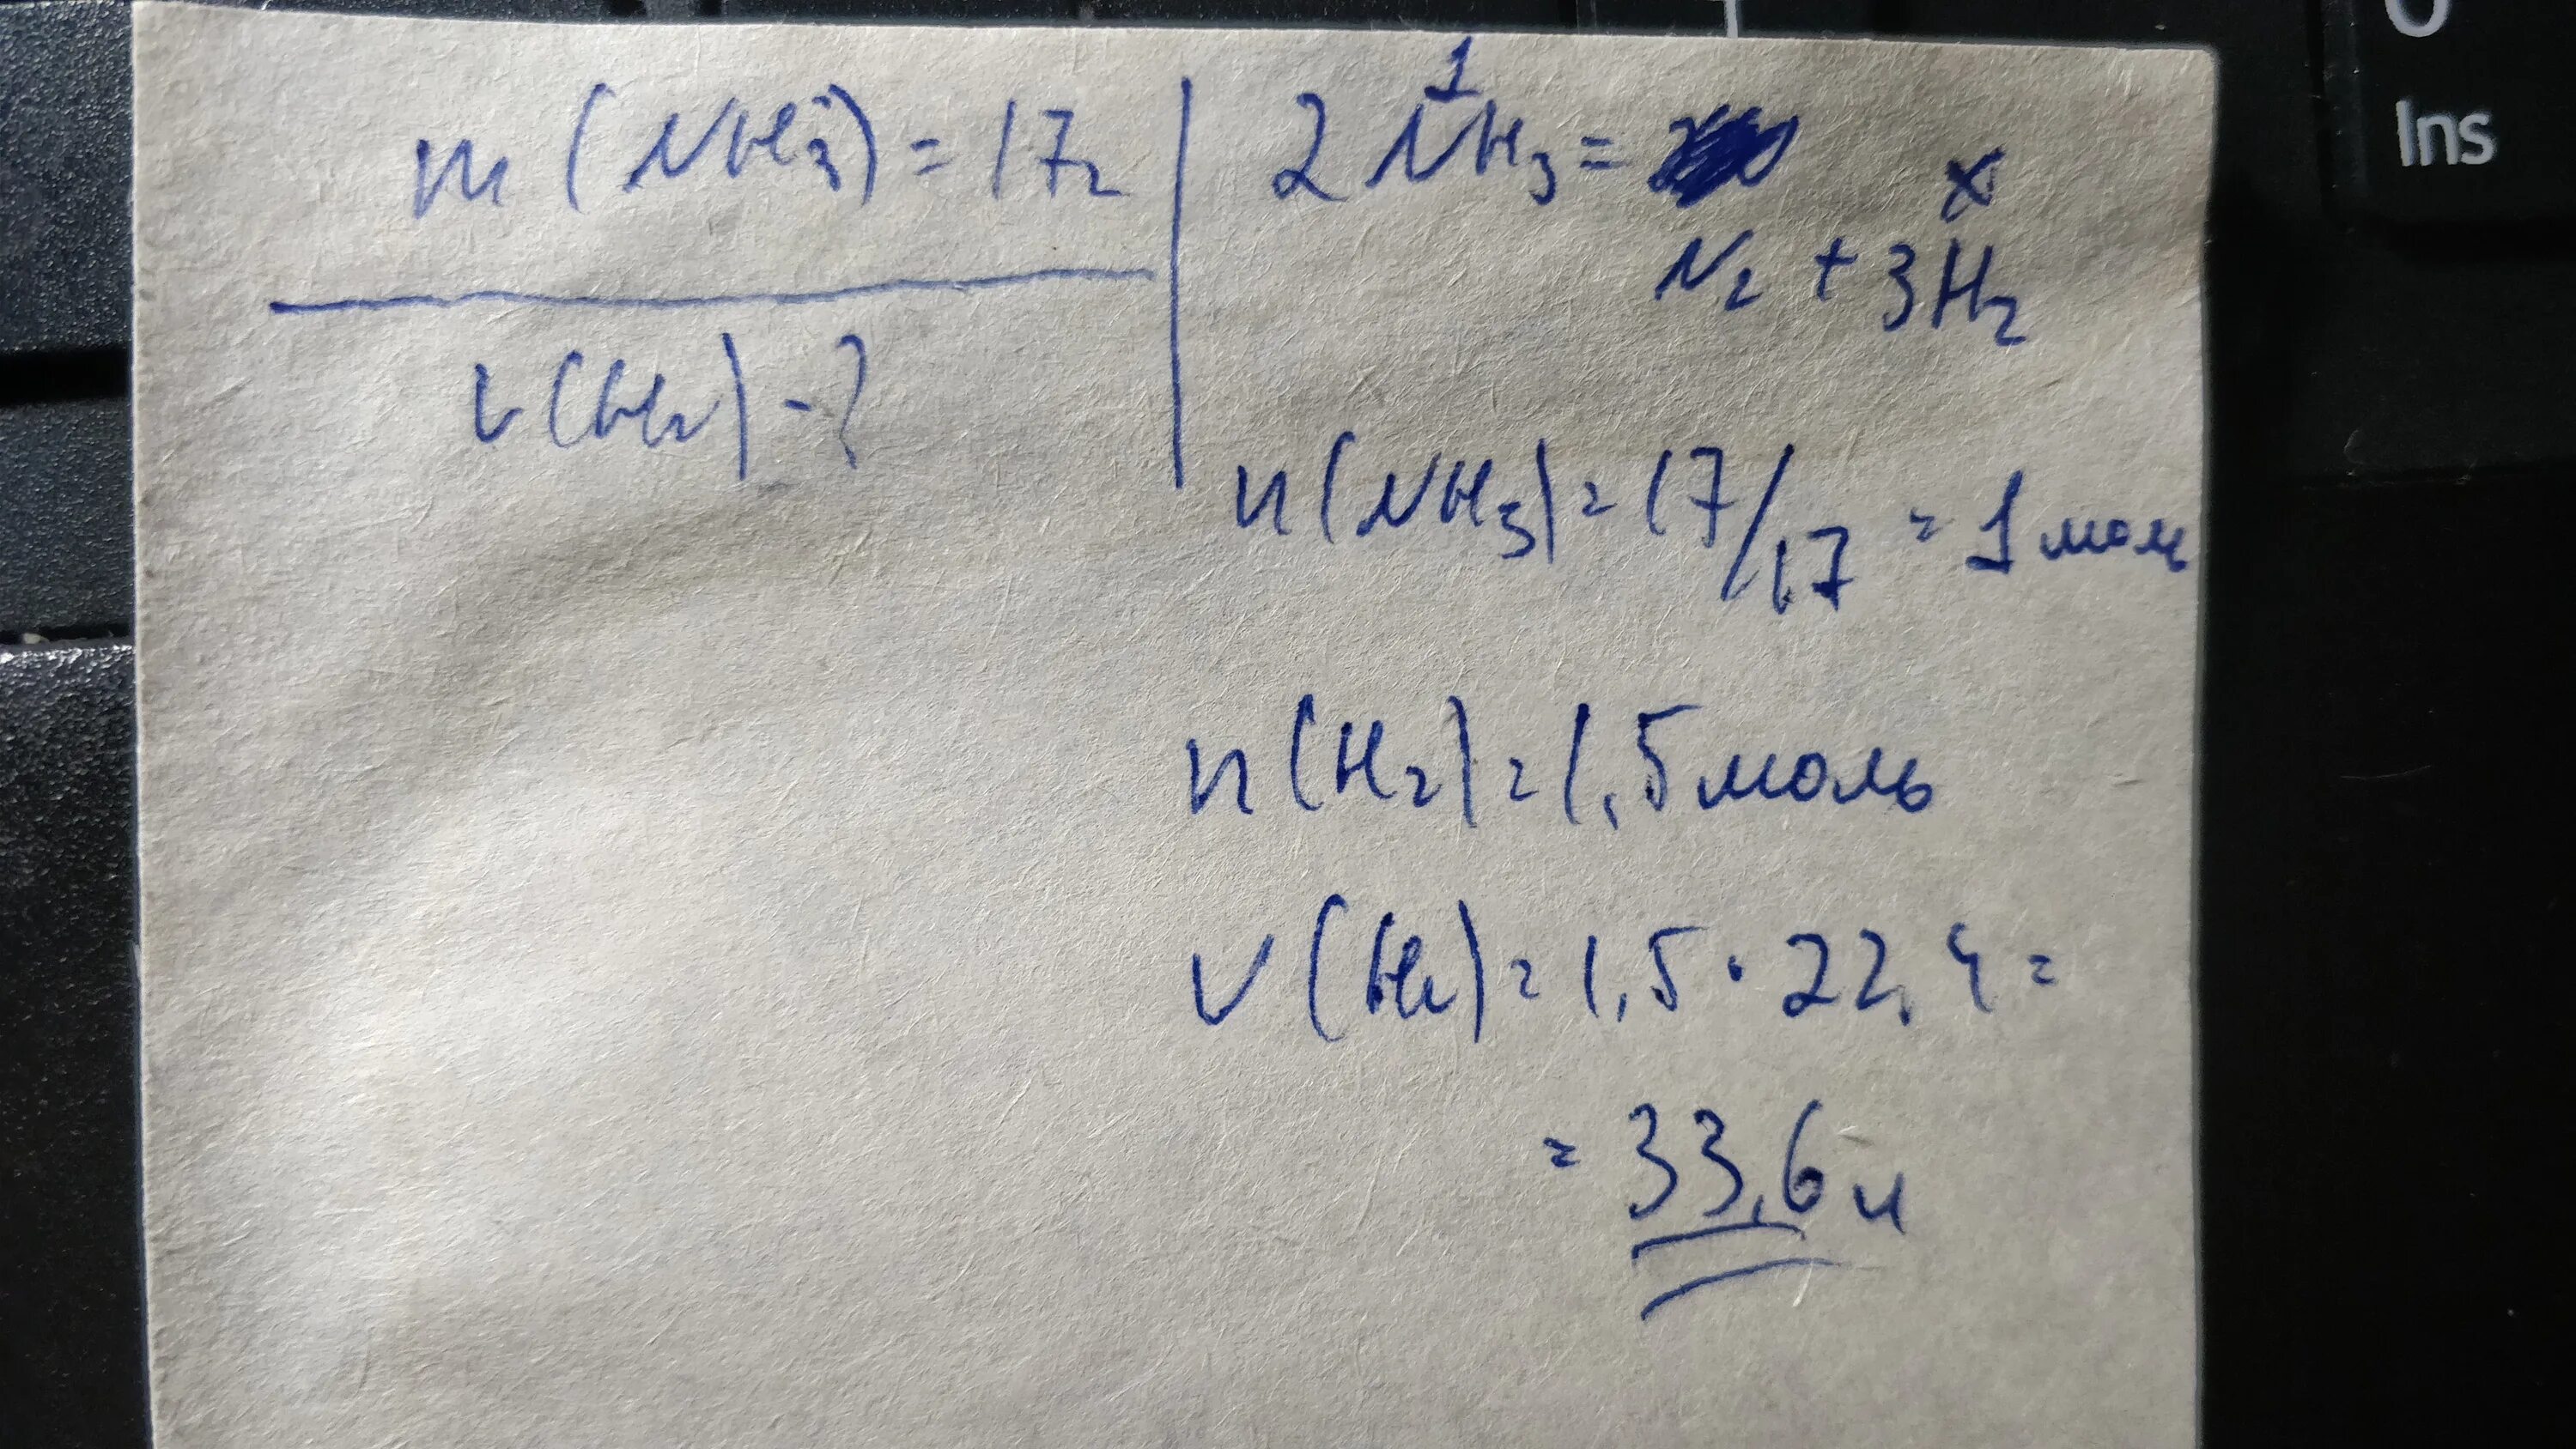 m(NH₃) = 17г
V(H₂) - ?
1
2NH₃ =
x
N₂ + 3H₂
n(NH₃) = 17/17 = 1 моль
n(H₂) = 1,5 моль
V(H₂) = 1,5 · 22,4 =
= 33,6 л
Ins